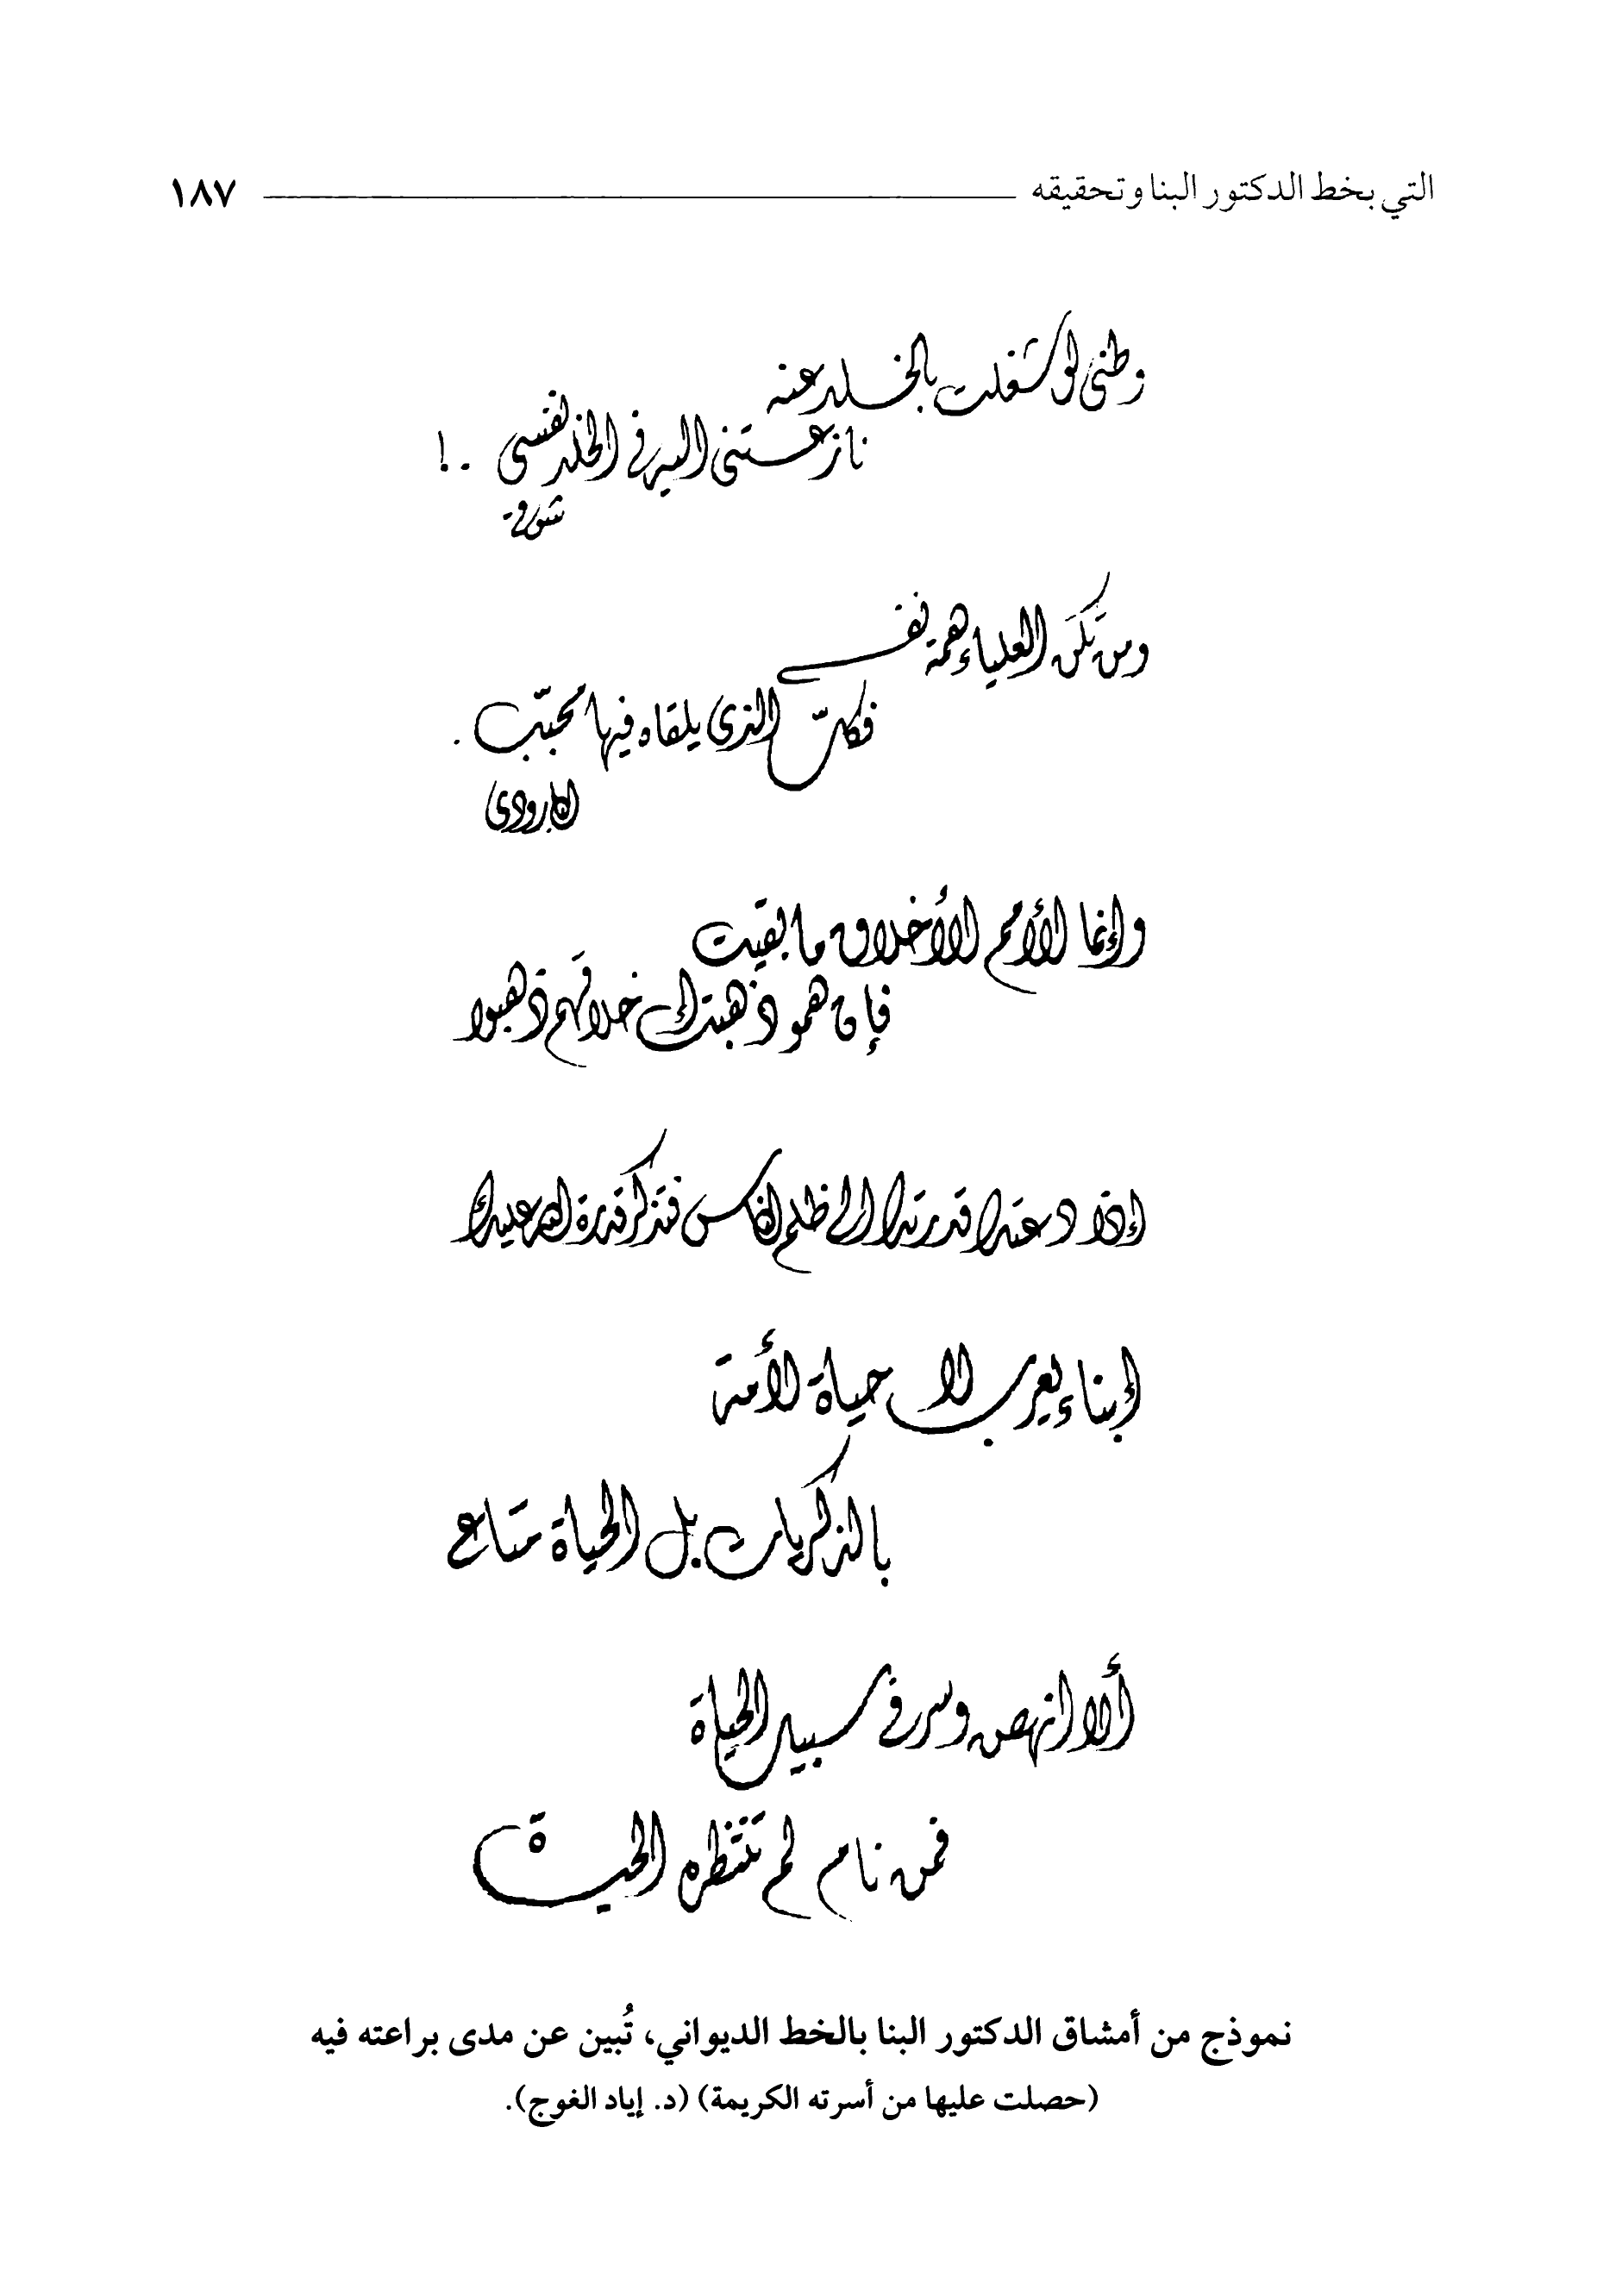 التي بخط الدكتور البنا وتحقيقه ١٨٧
وطني لو شغلت بالخلد عنه
نازعتني اليه في الخلد نفسي . !
شوقي
ومن تكن العلياء همة نفسه
فكلّ الذي يلقاه فيها محبّب .
البارودي
وإنما الأمم الأخلاق ما بقيت
فإن همو ذهبت أخلاقهم ذهبوا
إذا دعتك قدرتك الى ظلم الناس فتذكر قدرة الله عليك
أبناء يعرب لا حياة لأمة
بالذكريات بل الحياة متاع
ألا انهض وسر في سبيل الحياة
فمن نام لم تنتظره الحياة
نموذج من أمشاق الدكتور البنا بالخط الديواني، تُبين عن مدى براعته فيه
(حصلت عليها من أسرته الكريمة) (د. إياد الغوج).